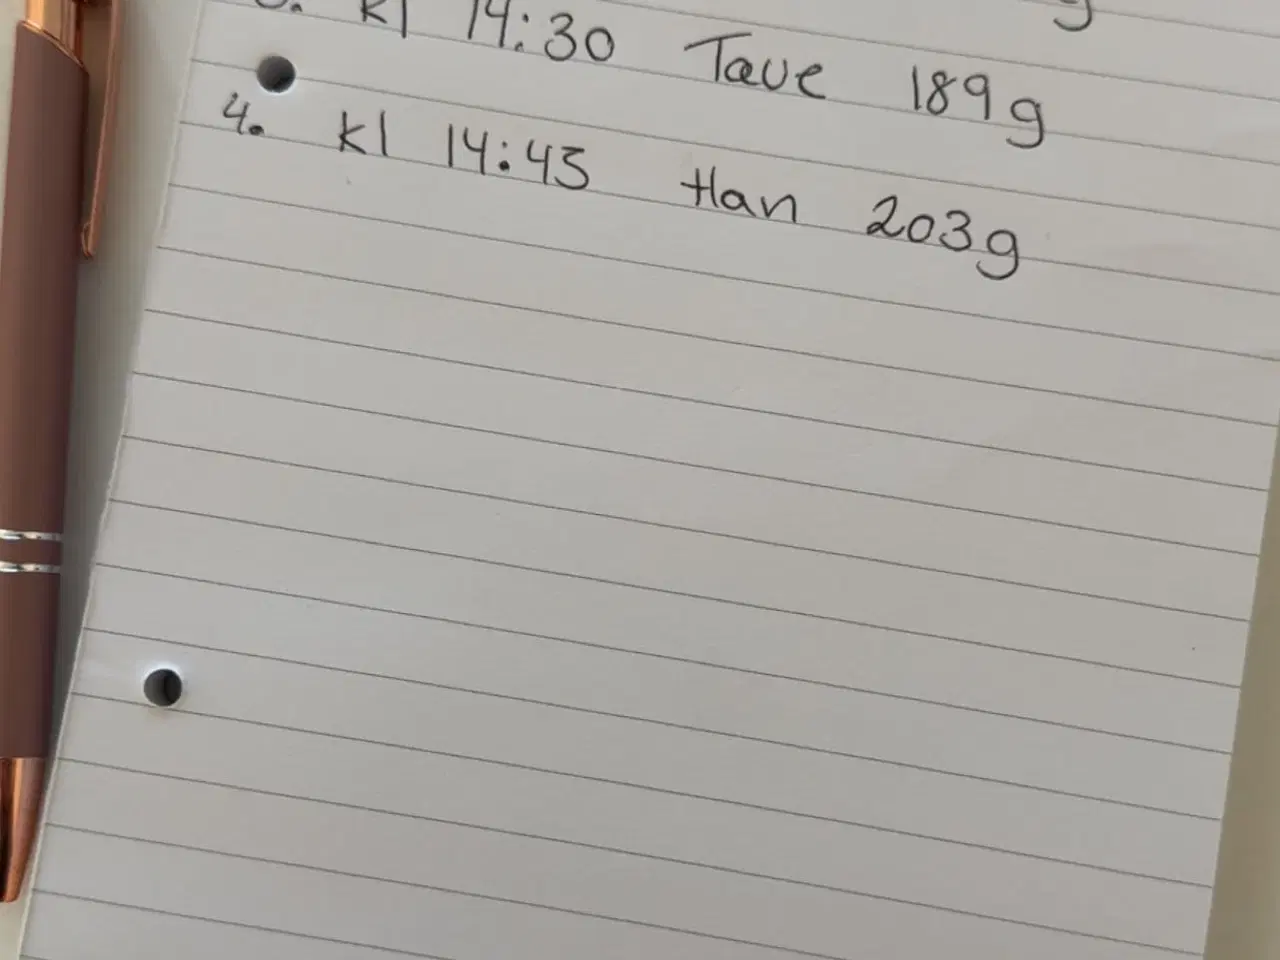 kl 14:30 Tave 189g
4. kl 14:45 Han 203g